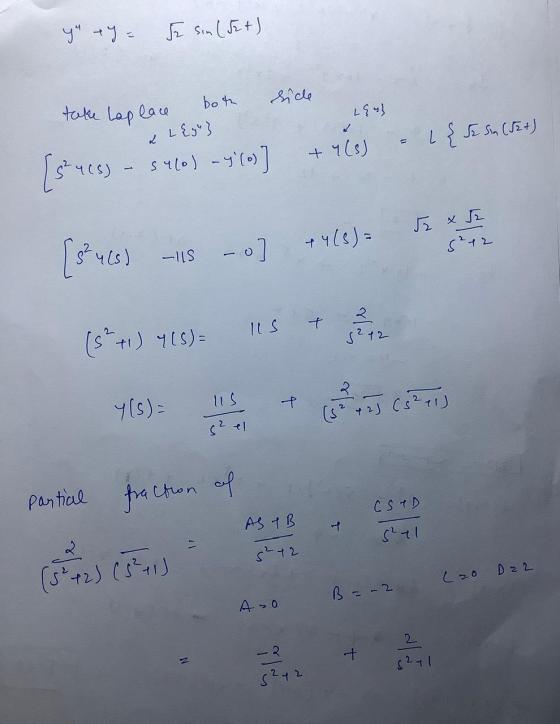 y" + y = √2 sin(√2t)
take Laplace both side
L{y"} L{y}
[s²Y(s) - sy(0) - y'(0)] + Y(s) = L{√2 sin(√2t)
[s²Y(s) - 11s - 0] + Y(s) = √2 × √2/(s²+2)
(s²+1) Y(s) = 11s + 2/(s²+2)
Y(s) = 11s/(s²+1) + 2/((s²+2)(s²+1))
Partial fraction of
2/((s²+2)(s²+1)) = (As+B)/(s²+2) + (Cs+D)/(s²+1)
A=0 B=-2 C=0 D=2
= -2/(s²+2) + 2/(s²+1)